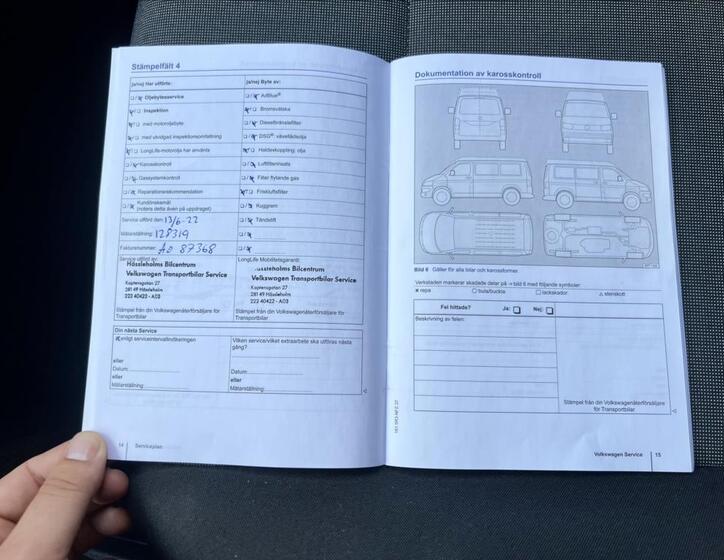 Stämpelfält 4
ja/nej Har utförts:
ja/nej Byte av:
Oljebytesservice
AdBlue®
Inspektion
Bromsvätska
med motoroljebyte
Dieselbränslefilter
med utvidgad inspektionsomfattning
DSG®: växellådsolja
LongLife-motorolja har använts
Haldexkoppling: olja
Karosskontroll
Luftfilterinsats
Gassystemkontroll
Filter flytande gas
Reparationsrekommendation
Friskluftsfilter
Kundönskemål
(notera detta även på uppdraget)
Kuggrem
Service utförd den: 13/6-22
Tändstift
Mätarställning: 128319
Fakturanummer: AO 87368
Service utförd av:
LongLife Mobilitetsgaranti:
Hässleholms Bilcentrum
Volkswagen Transportbilar Service
Kaptensgatan 27
281 49 Hässleholm
223 40422 - A03
Stämpel från din Volkswagenåterförsäljare för
Transportbilar
Hässleholms Bilcentrum
Volkswagen Transportbilar Service
Kaptensgatan 27
281 49 Hässleholm
223 40422 - A03
Stämpel från din Volkswagenåterförsäljare för
Transportbilar
Din nästa Service
enligt serviceintervallindikeringen
eller
Datum:
eller
Mätarställning:
Vilken service/vilket extraarbete ska utföras nästa
gång?
Datum:
eller
Mätarställning:
14 Serviceplan
Dokumentation av karosskontroll
Bild 6 Gäller för alla bilar och karossformer
Verkstaden markerar skadade delar på → bild 6 med följande symboler:
× repa
○ bula/buckla
□ lackskador
△ stenskott
Fel hittade?
Ja:
Nej:
Beskrivning av felen:
Stämpel från din Volkswagenåterförsäljare
för Transportbilar
Volkswagen Service 15